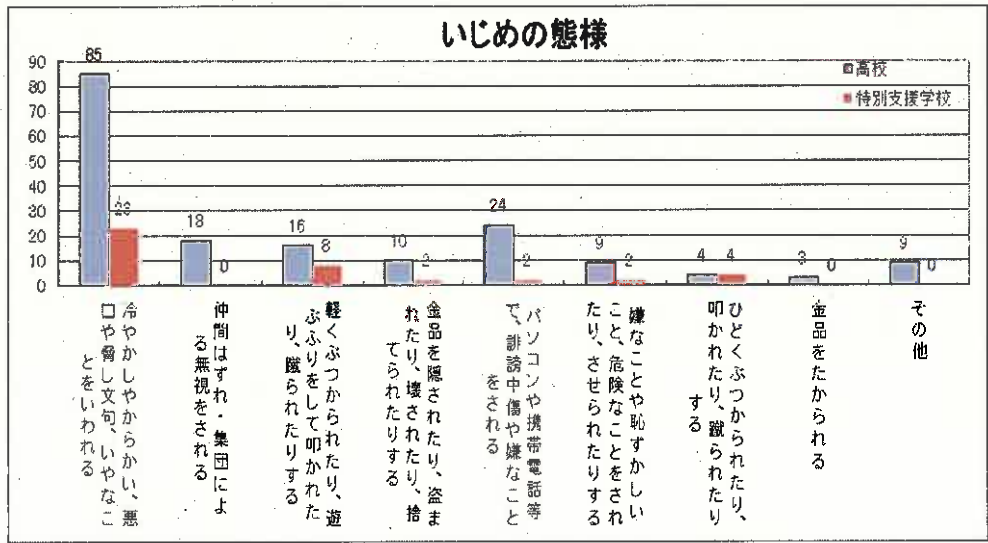 いじめの態様
高校
特別支援学校
90
80
70
60
50
40
30
20
10
0
85
23
18
0
16
8
10
2
24
2
9
2
4
4
3
0
9
0
冷やかしやからかい、悪
口や脅し文句、いやなこ
とをいわれる
仲間はずれ・集団によ
る無視をされる
軽くぶつかられたり、遊
ぶふりをして叩かれた
り、蹴られたりする
金品を隠されたり、盗ま
れたり、壊されたり、捨
てられたりする
パソコンや携帯電話等
で、誹謗中傷や嫌なこと
をされる
嫌なことや恥ずかしい
こと、危険なことをされ
たり、させられたりする
ひどくぶつかられたり、
叩かれたり、蹴られたり
する
金品をたかられる
その他